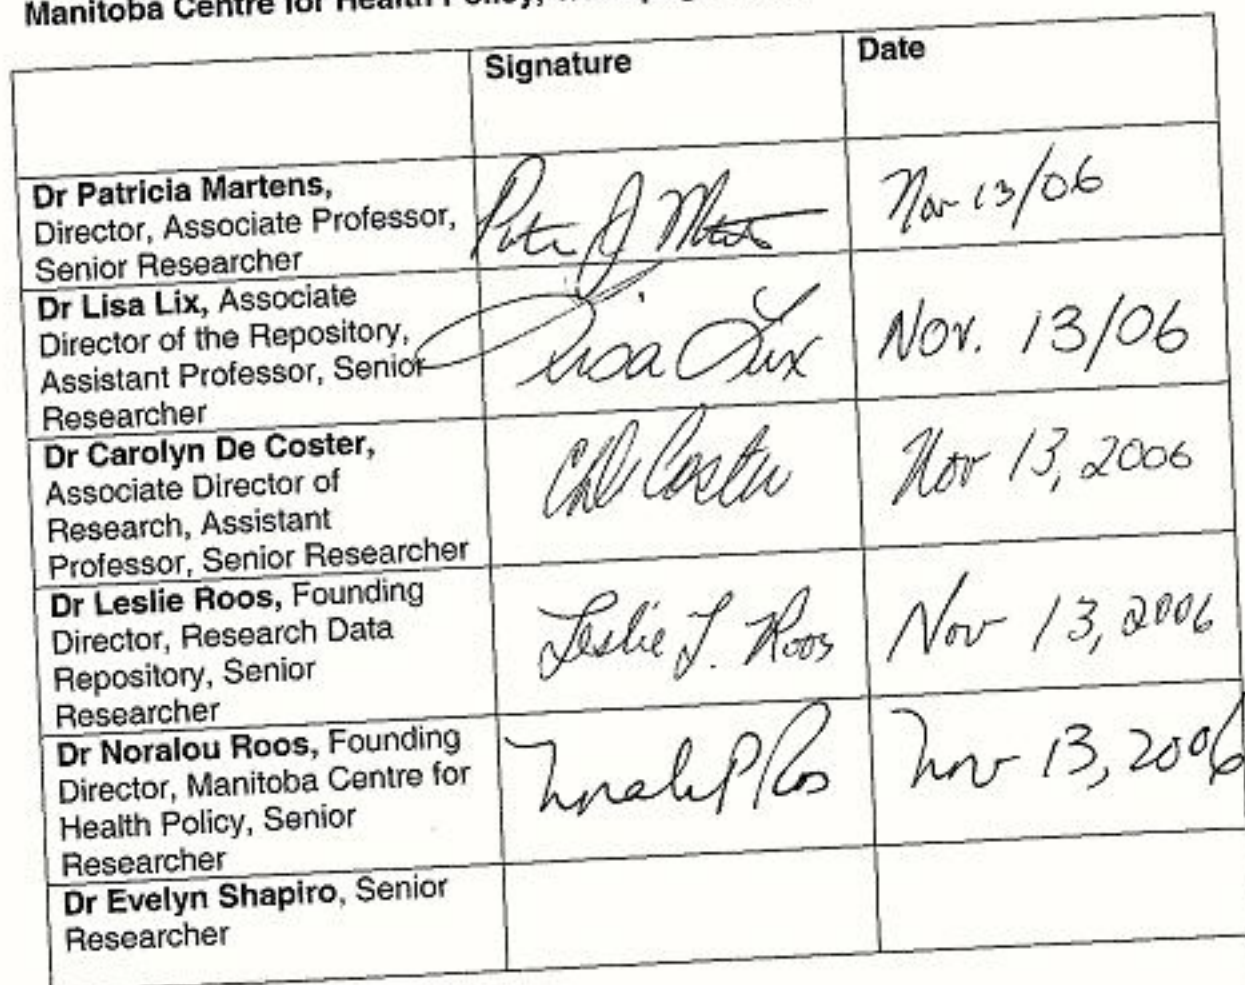 Manitoba Centre for Health Policy,
Signature Date
Dr Patricia Martens,
Director, Associate Professor,
Senior Researcher
Nov 13/06
Dr Lisa Lix, Associate
Director of the Repository,
Assistant Professor, Senior
Researcher
Lisa Lix
Nov. 13/06
Dr Carolyn De Coster,
Associate Director of
Research, Assistant
Professor, Senior Researcher
De Coster
Nov 13, 2006
Dr Leslie Roos, Founding
Director, Research Data
Repository, Senior
Researcher
Leslie L. Roos
Nov 13, 2006
Dr Noralou Roos, Founding
Director, Manitoba Centre for
Health Policy, Senior
Researcher
Nov 13, 2006
Dr Evelyn Shapiro, Senior
Researcher